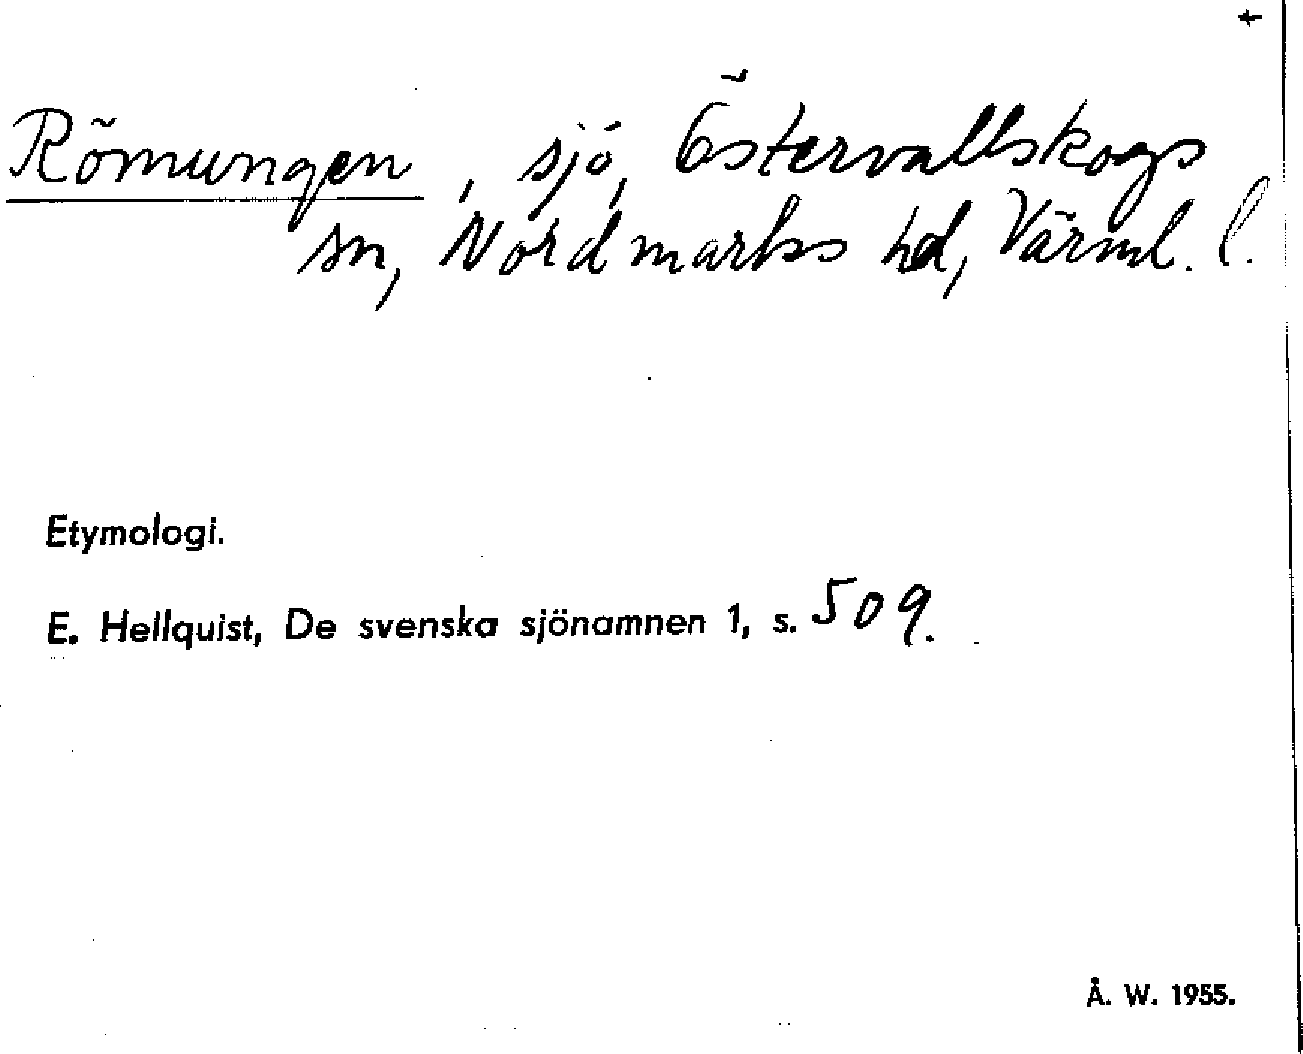 +
Römungen, sjö, Östervallskogs
sn, Nordmarks hd, Värml. l.
Etymologi.
E. Hellquist, De svenska sjönamnen 1, s. 509.
Å. W. 1955.